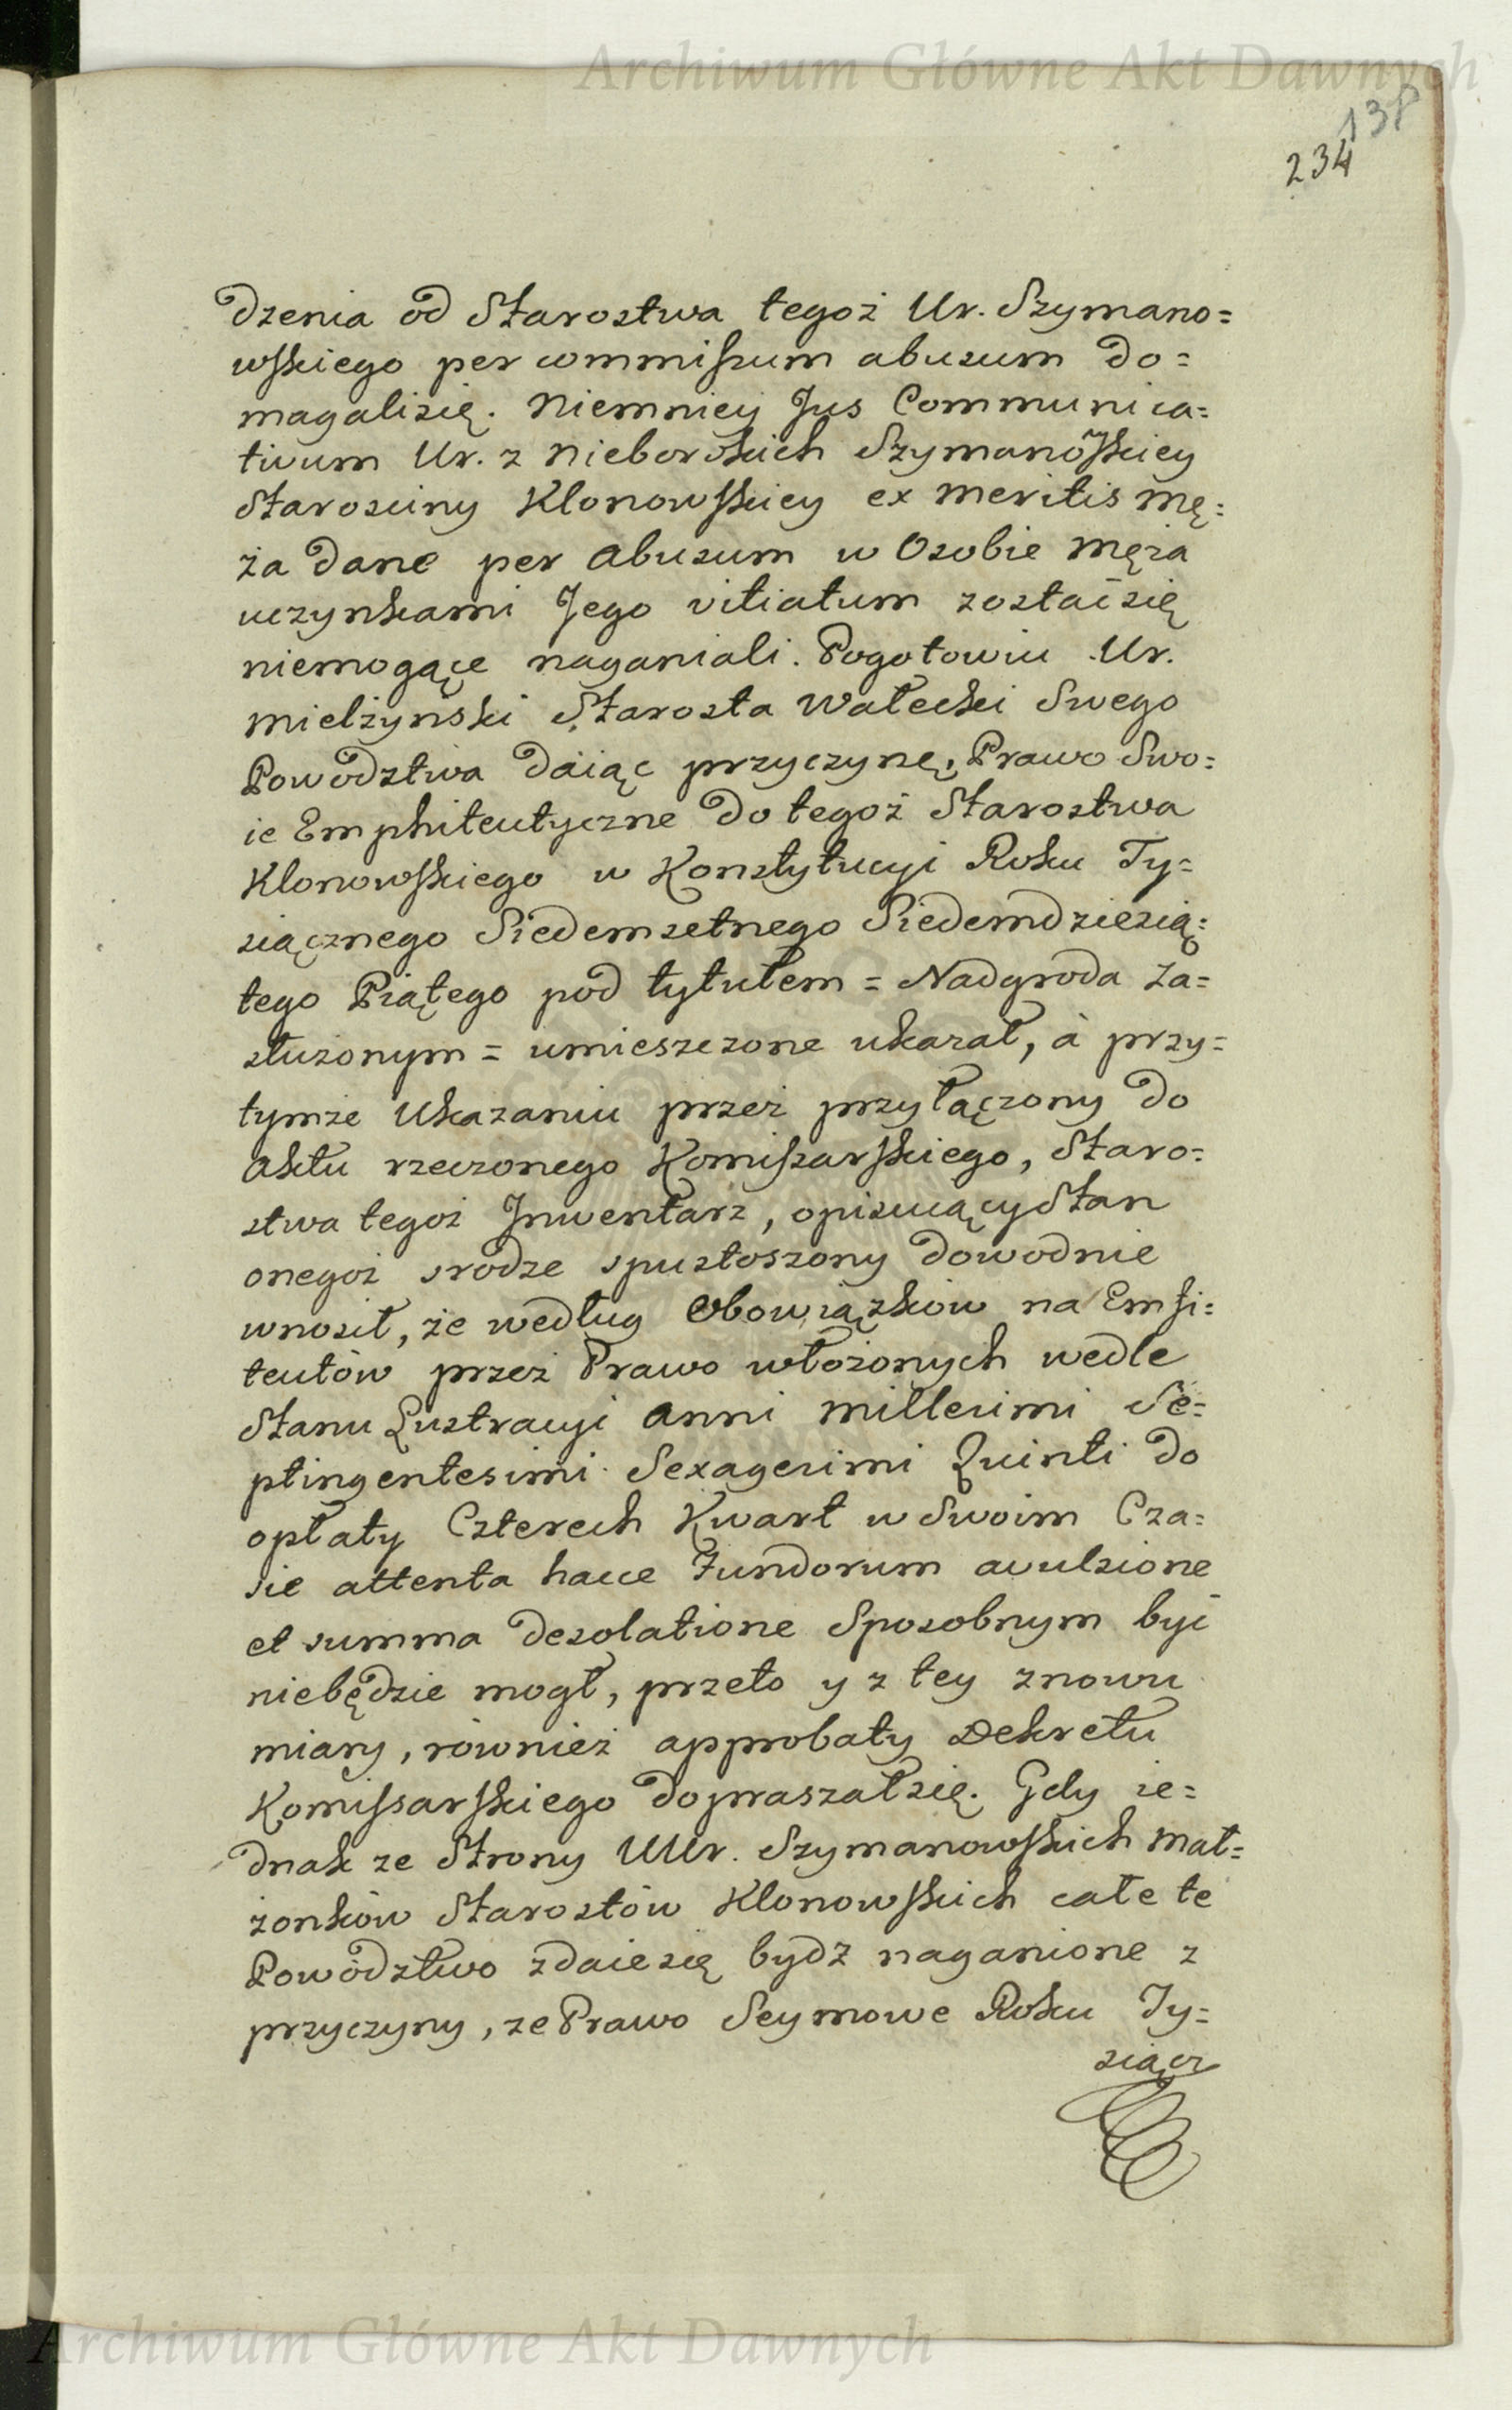 Archiwum Główne Akt Dawnych
138
234
dzenia od Starostwa tegoż Ur. Szymano=
wskiego per commissum abusum do=
magalisię. Niemniey Jus Communica=
tivum Ur. z Nieborskich Szymanoskiey
Starosciny Klonowskiey ex meritis mę=
ża dane per abusum w Osobie męża
uczynkami Jego vitiatum zostaćsię
niemogące naganiali. Pogotowiu Ur.
Mielżynski Starosta Wałecki Swego
Powodztwa daiąc przyczynę, Prawo Swo=
ie Emphiteutyczne do tegoż Starostwa
Klonowskiego w Konstytucyi Roku Ty=
siącznego Siedemsetnego Siedemdziesią=
tego Piątego pod tytułem = Nadgroda Za=
służonym = umieszczone ukazał, à przy=
tymże Ukazaniu przez przyłączony do
Aktu rzeczonego Komissarskiego, Staro=
stwa tegoż Inwentarz, opisuiący Stan
onegoż srodze spustoszony dowodnie
wnosił, że według Obowiązków na Emfi=
teutów przez Prawo włożonych wedle
Stanu Lustracyi Anni millesimi Se=
ptingentesimi Sexagesimi Quinti do
opłaty Czterech Kwart w Swoim Cza=
sie attenta hacce Fundorum avulsione
et summa desolatione Sposobnym być
niebędzie mogł, przeto y z tey znowu
miary, również approbaty Dekretu
Komissarskiego dopraszałsię. Gdy ie=
dnak ze Strony UUr. Szymanowskich Mał=
żonków Starostów Klonowskich całe te
Powództwo zdaiesię bydź naganione z
przyczyny, ze Prawo Seymowe Roku Ty=
siącz
Archiwum Główne Akt Dawnych